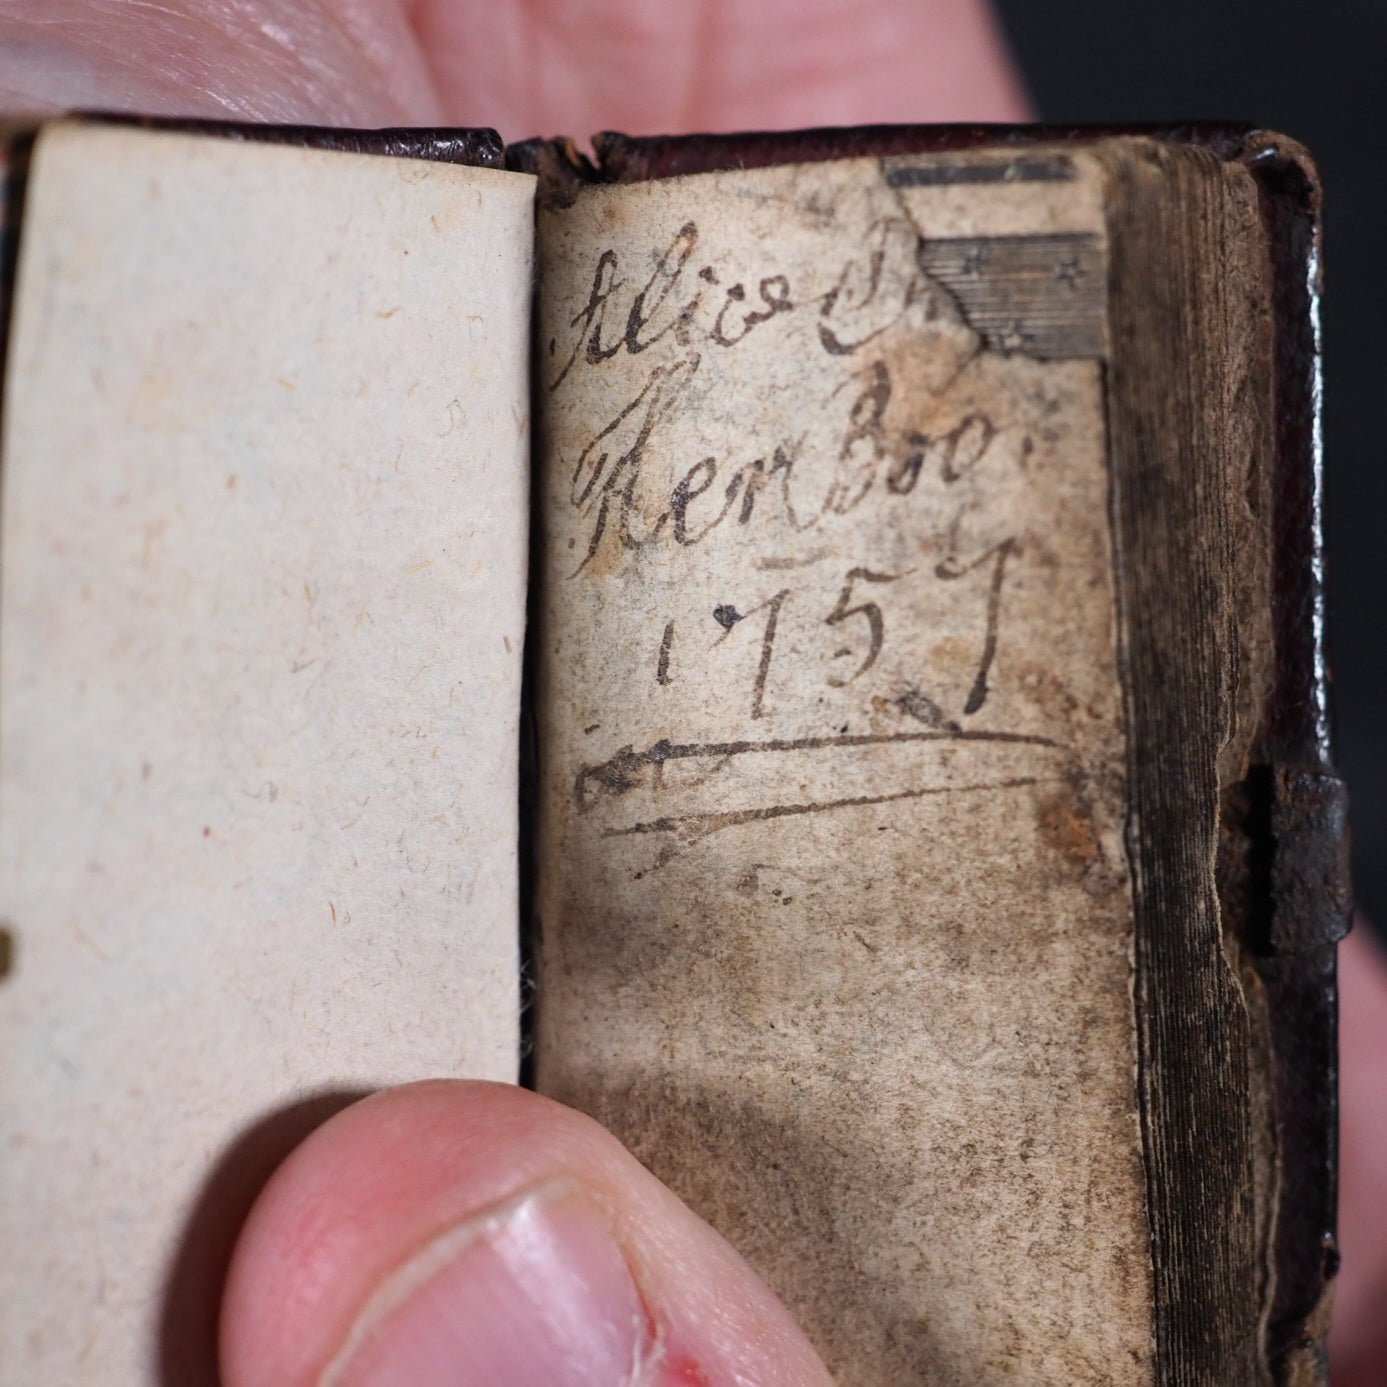 Alice
Her Boo
1757